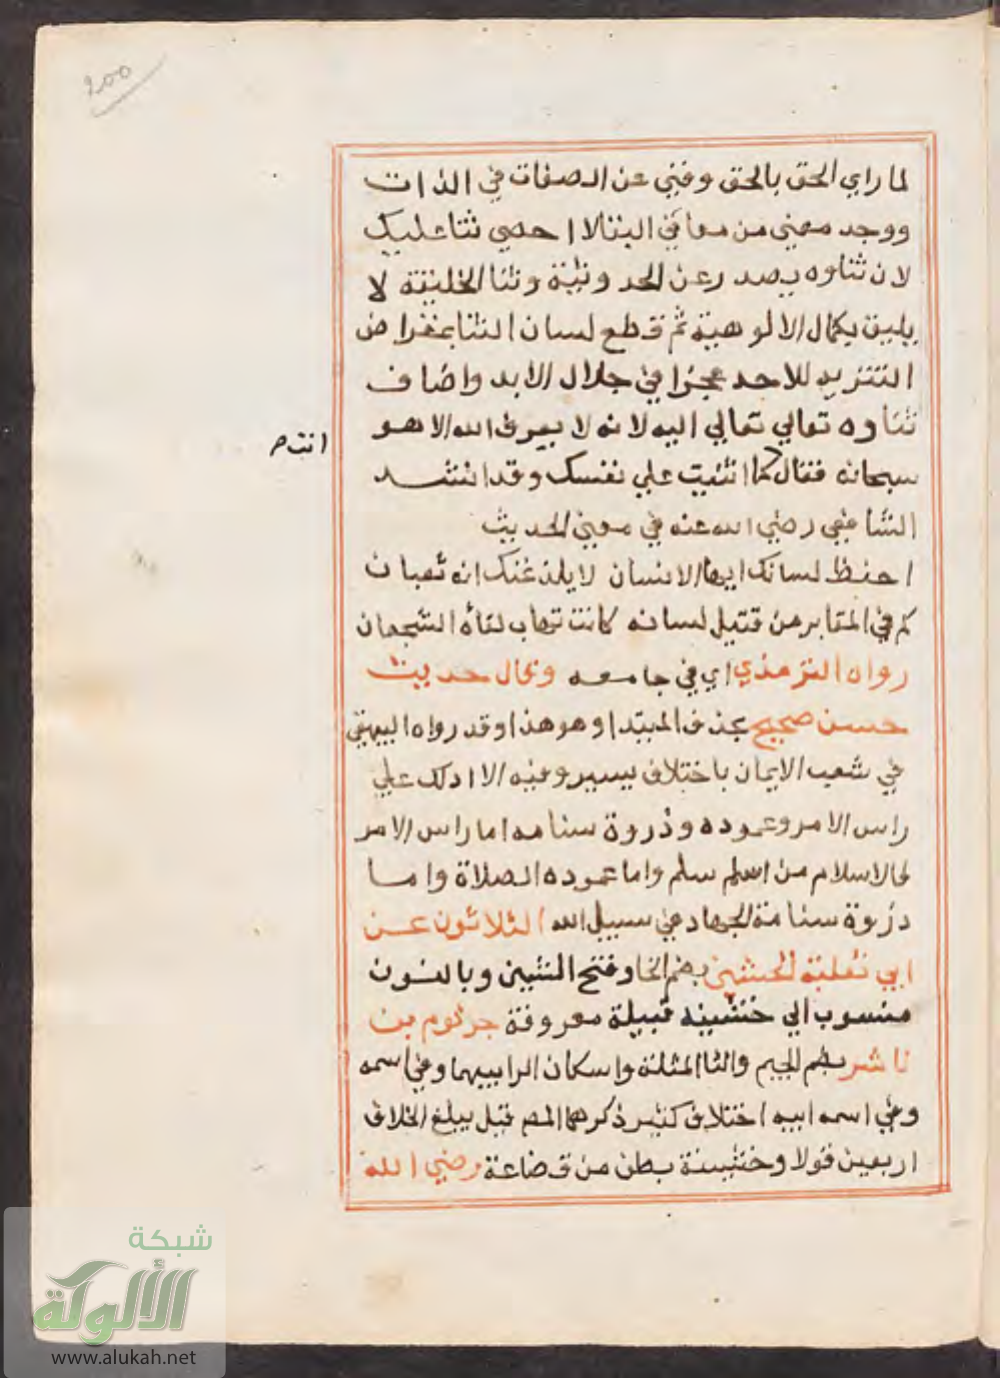 200
لما راي الحق بالحق وفني عن الصفات في الذات
ووجد معني من معاني البقا لا احصي ثنا عليك
لان ثناوه يصدر عن الحدوثية وثنا الخليقة لا
يليق بكمال الالوهية ثم قطع لسان الثنا بمقراض
التنزيه للاحد عجزا في جلال الابد واضاف
ثناوه تعالي تعالي اليه لانه لا يعرف الله الا هو
سبحانه فقال كما اثنيت علي نفسك وقد انشد
انت م
الشافعي رضي الله عنه في معني الحديث
احفظ لسانك ايها الانسان لا يلدغنك انه ثعبان
كم في المقابر من قتيل لسانه كانت تهاب لقاه الشجعان
رواه الترمذي اي في جامعه وقال حديث
حسن صحيح بحذف المبتدا وهو هذا وقد رواه البيهقي
في شعب الايمان باختلاف يسير وفيه الا ادلك علي
راس الامر وعموده وذروة سنامه اما راس الامر
فالاسلام من اسلم سلم واما عموده الصلاة واما
دزوة سنامة الجهاد في سبيل الله الثلاثون عن
ابي ثعلبة الخشني بضم الخا وفتح الشين وبالنون
منسوب الي خشينه قبيلة معروفة جرثوم بن
ناشر بضم الجيم والثا المثلثة واسكان الرا بينهما وفي اسمه
وفي اسمه ابيه اختلاف كثير ذكرهما المص قبل يبلغ الخلاف
اربعين قولا وخشينة بطن من قضاعة رضي الله
شبكة
الألوكة
www.alukah.net